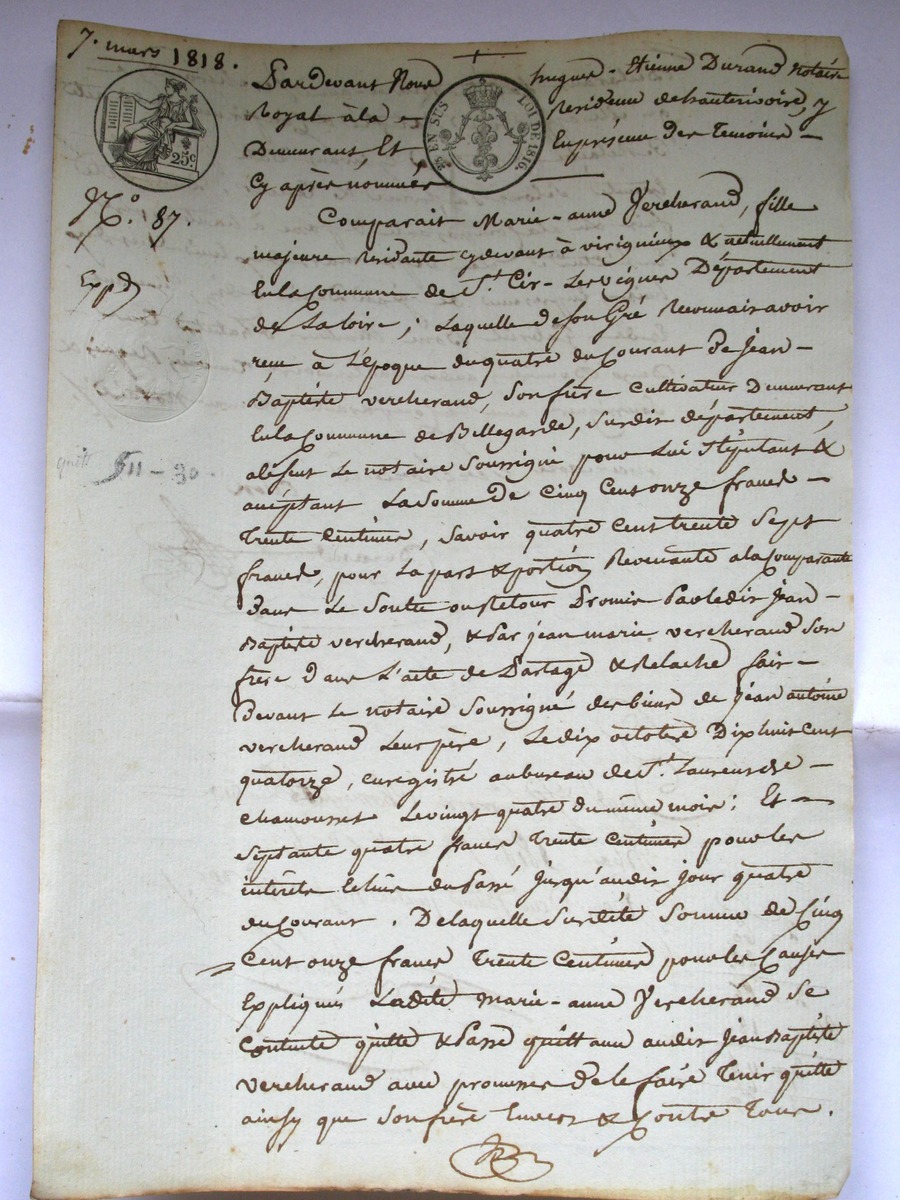 7. mars 1818.
25c
EN SUS
LOI DE 1816.
N.° 87.
Exp.d
511 - 30
Pardevant Nous hugue - Etienne Durand Notaire
Royal à la Residence de hauterivoire, y
Demeurant, Et En présence des Temoins -
Cy après nommés
Comparait Marie - anne Vercherand, fille
majeure residante cydevant à virignieux & actuellement
En la Commune de St. Cir - Les vignes Département
de La loire ; Laquelle de son Gré Reconnait avoir
reçu à L'époque du quatre du Courant de Jean -
Baptiste vercherand, son frère Cultivateur Demeurant
En la Commune de Bellegarde, susdit département,
absent Le notaire soussigné pour Lui stipulant &
acceptant La somme de Cinq Cent onze francs -
Trente Centimes, savoir quatre Cent trente sept
francs, pour La part & portion Revenante a la Comparante
dans Le Soulte ou Retour Promis Par ledit Jean -
Baptiste vercherand, & Par jean marie vercherand son
frère dans L'acte de Partage & Relaché fait -
Devant Le notaire soussigné des biens de Jean antoine
vercherand Leur père, Le dix octobre Dix huit Cent
quatorze, enregistré au bureau de St. Laurent de -
chamousset Le vingt quatre du même mois ; Et -
septante quatre francs Trente Centimes pour les
intérêts du Passé jusqu'audit jour quatre
du Courant. De laquelle susdite somme de Cinq
Cent onze francs Trente Centimes pour les Causes
Expliqués Ladite Marie - anne Vercherand se
Contente quitte & Passe quittance audit Jean Baptiste
vercherand avec promesse de le faire Tenir quitte
ainsy que son frère Envers & Contre Tous.